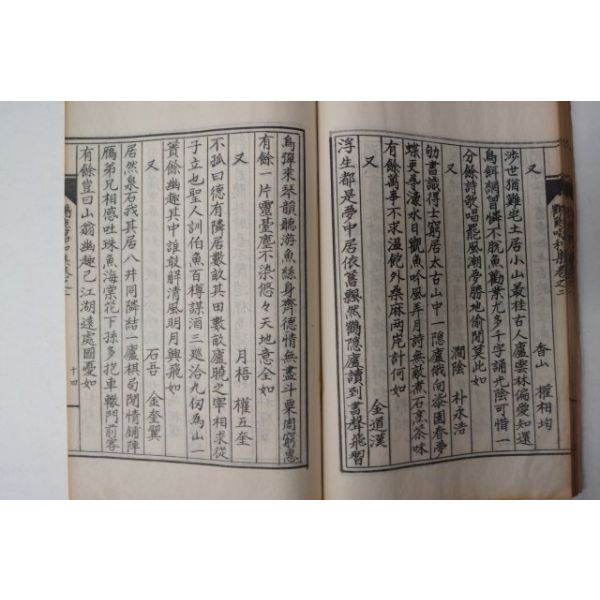 又　香山　權相均
涉世猶難宅土居小山最桂古人廬雲林偏愛知還
鳥餌網習憐不脫魚勸業尤多千字誦光陰可惜一
分餘詩歌唱罷風潮夢勝地偷閒莫此如
又　潤陰　朴永浩
劬書識得士窮居太古山中一隱廬俄向漆園春夢
蝶更尋濠水日觀魚吟風弄月詩無敵煮石烹茶味
有餘萬事不求溫飽外桑麻兩岸計何如
又　金道漢
浮生都是夢中居依舊飄然鶴隱廬讀到書聲飛響
卷之二
鳥彈來琴韻聽游魚絲身齊德情無盡斗粟周窮惠
有餘一片靈臺塵不染悠々天地意全如
又　月梧　權五奎
不孤曰德有隣居數畝其田數畝廬曉之宰相求從
子立也聖人訓伯魚百樽謀酒三巡洽九仞為山一
簣餘幽趣其中誰敢解清風明月興飛如
又　石吾　金奎冀
居然泉石我其居八井同隣結一廬棋局閒情鋪陣
鴈弟兄相感吐珠魚海棠花下孫多抱車轍門前客
有餘豈曰山翁幽趣已江湖遠處國憂如
十四